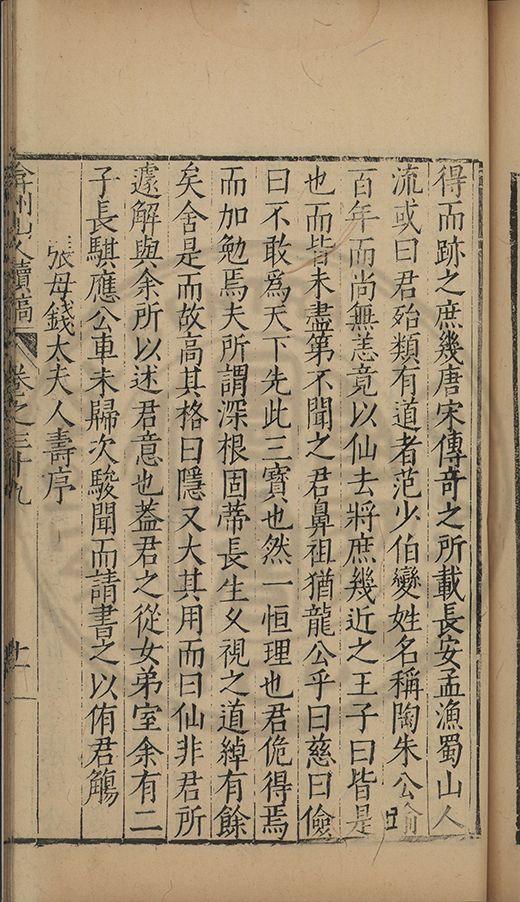 得而跡之庶幾唐宋傳奇之所載長安孟漁蜀山人
流或曰君殆類有道者范少伯變姓名稱陶朱公踰
百年而尚無恙竟以仙去將庶幾近之王子曰皆是
也而皆未盡第不聞之君鼻祖猶龍公乎曰慈曰儉
曰不敢爲天下先此三寶也然一恒理也君佹得焉
而加勉焉夫所謂深根固蔕長生久視之道綽有餘
矣舍是而故高其格曰隱又大其用而曰仙非君所
遽解與余所以述君意也葢君之從女弟室余有二
子長騏應公車未歸次駿聞而請書之以侑君觴
張母錢太夫人壽序
弇州山人續稿 卷之三十九 十一